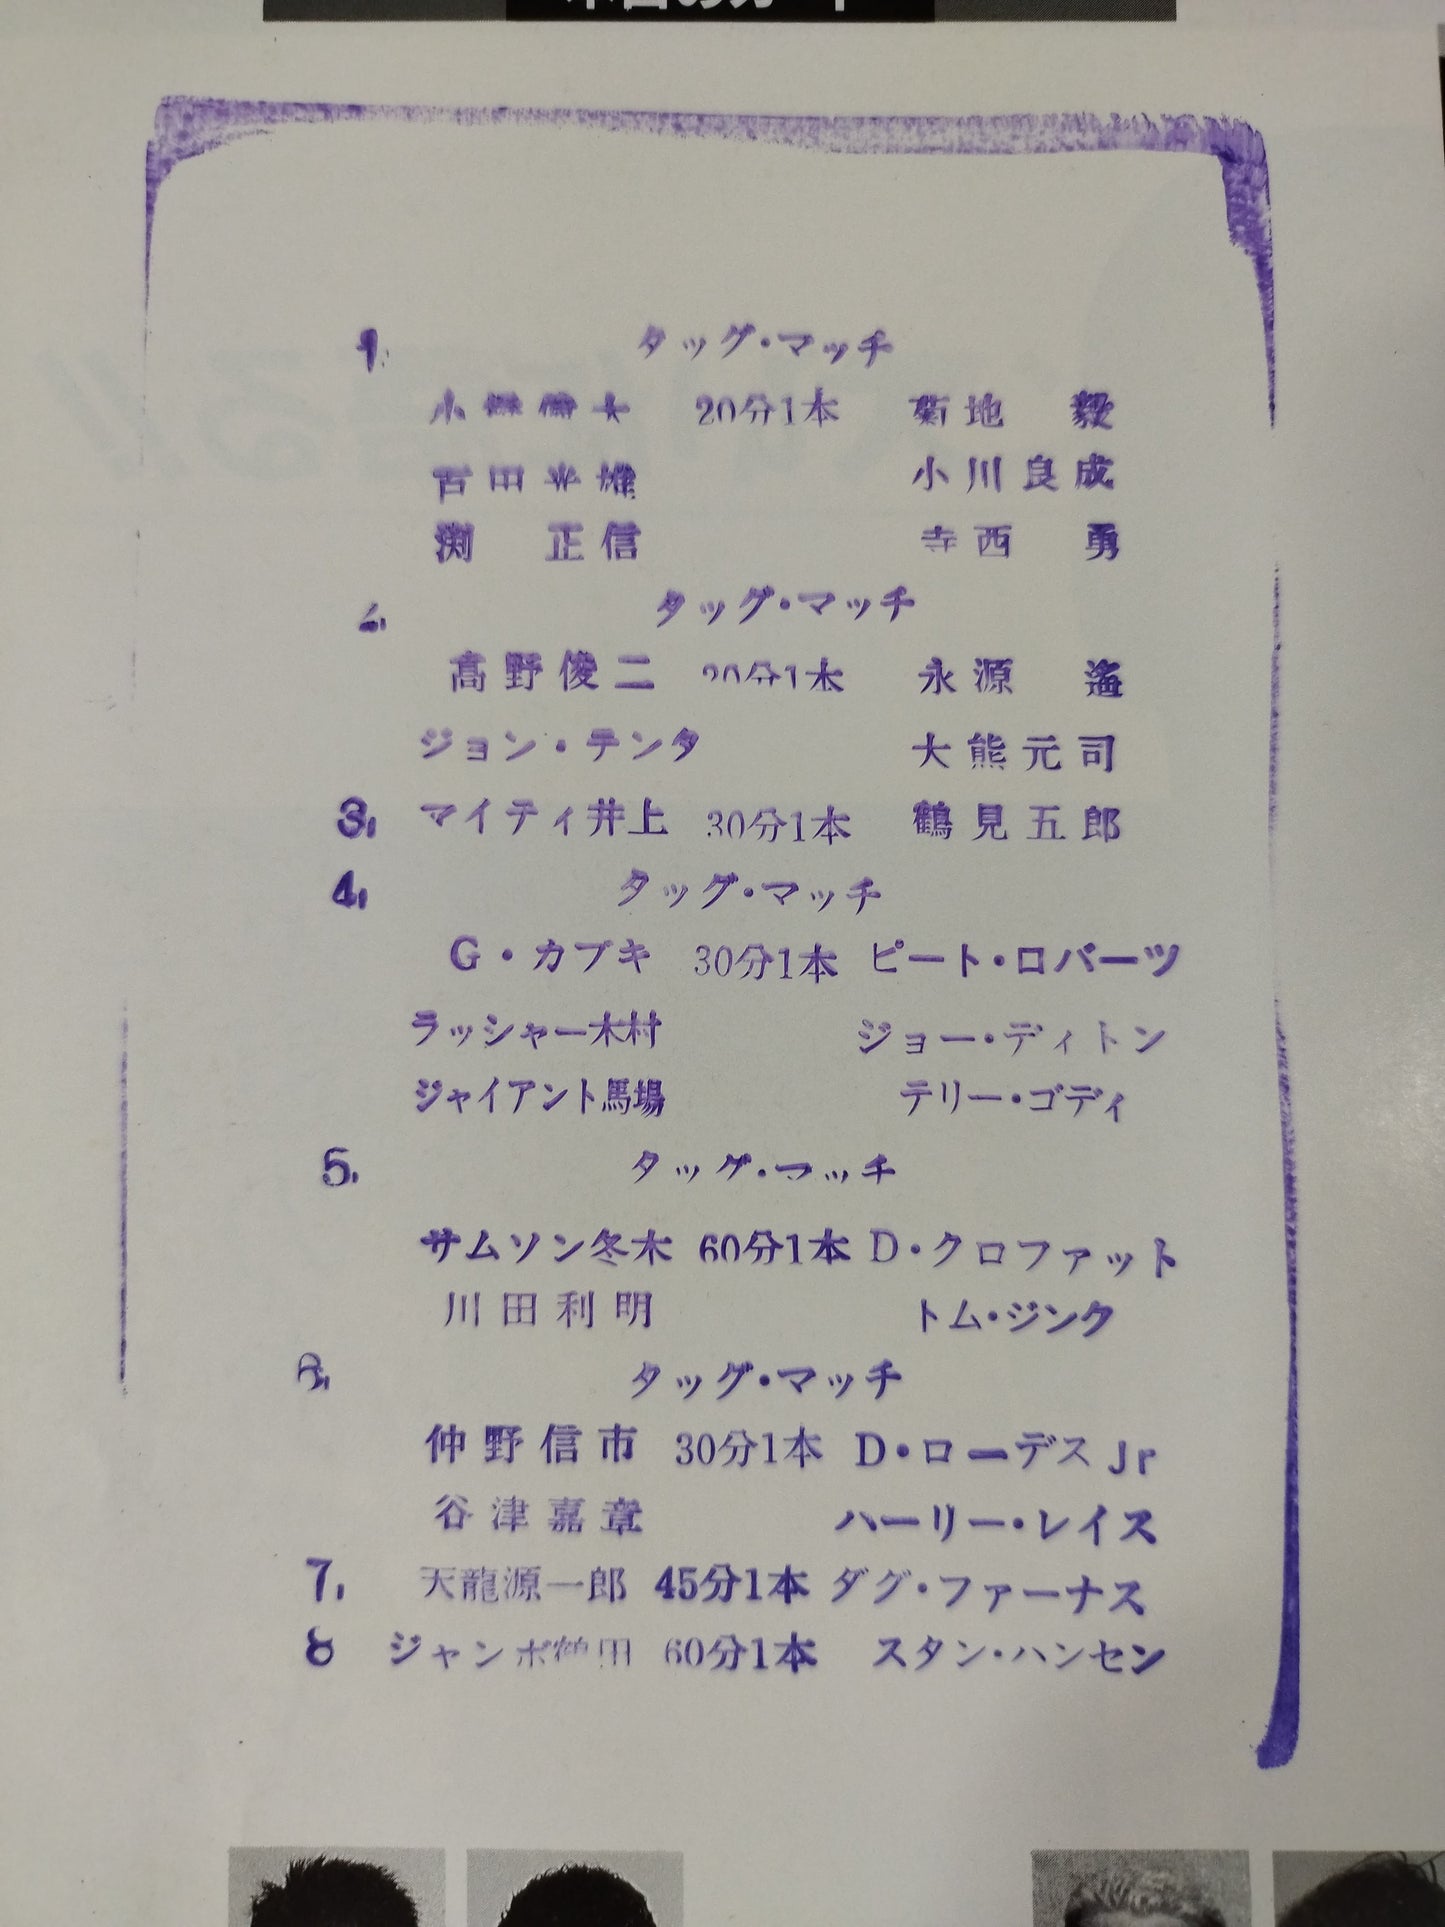 本日のカード
1. タッグ・マッチ
小 20分1本 菊地 毅
吉田光雄 小川良成
渕 正信 寺西 勇
2. タッグ・マッチ
髙野俊二 20分1本 永源 遙
ジョン・テンタ 大熊元司
3. マイティ井上 30分1本 鶴見五郎
4. タッグ・マッチ
G・カブキ 30分1本 ピート・ロバーツ
ラッシャー木村 ジョー・ディトン
ジャイアント馬場 テリー・ゴディ
5. タッグ・マッチ
サムソン冬木 60分1本 D・クロファット
川田利明 トム・ジンク
6. タッグ・マッチ
仲野信市 30分1本 D・ローデスJr
谷津嘉章 ハーリー・レイス
7. 天龍源一郎 45分1本 ダグ・ファーナス
8 ジャンボ鶴田 60分1本 スタン・ハンセン